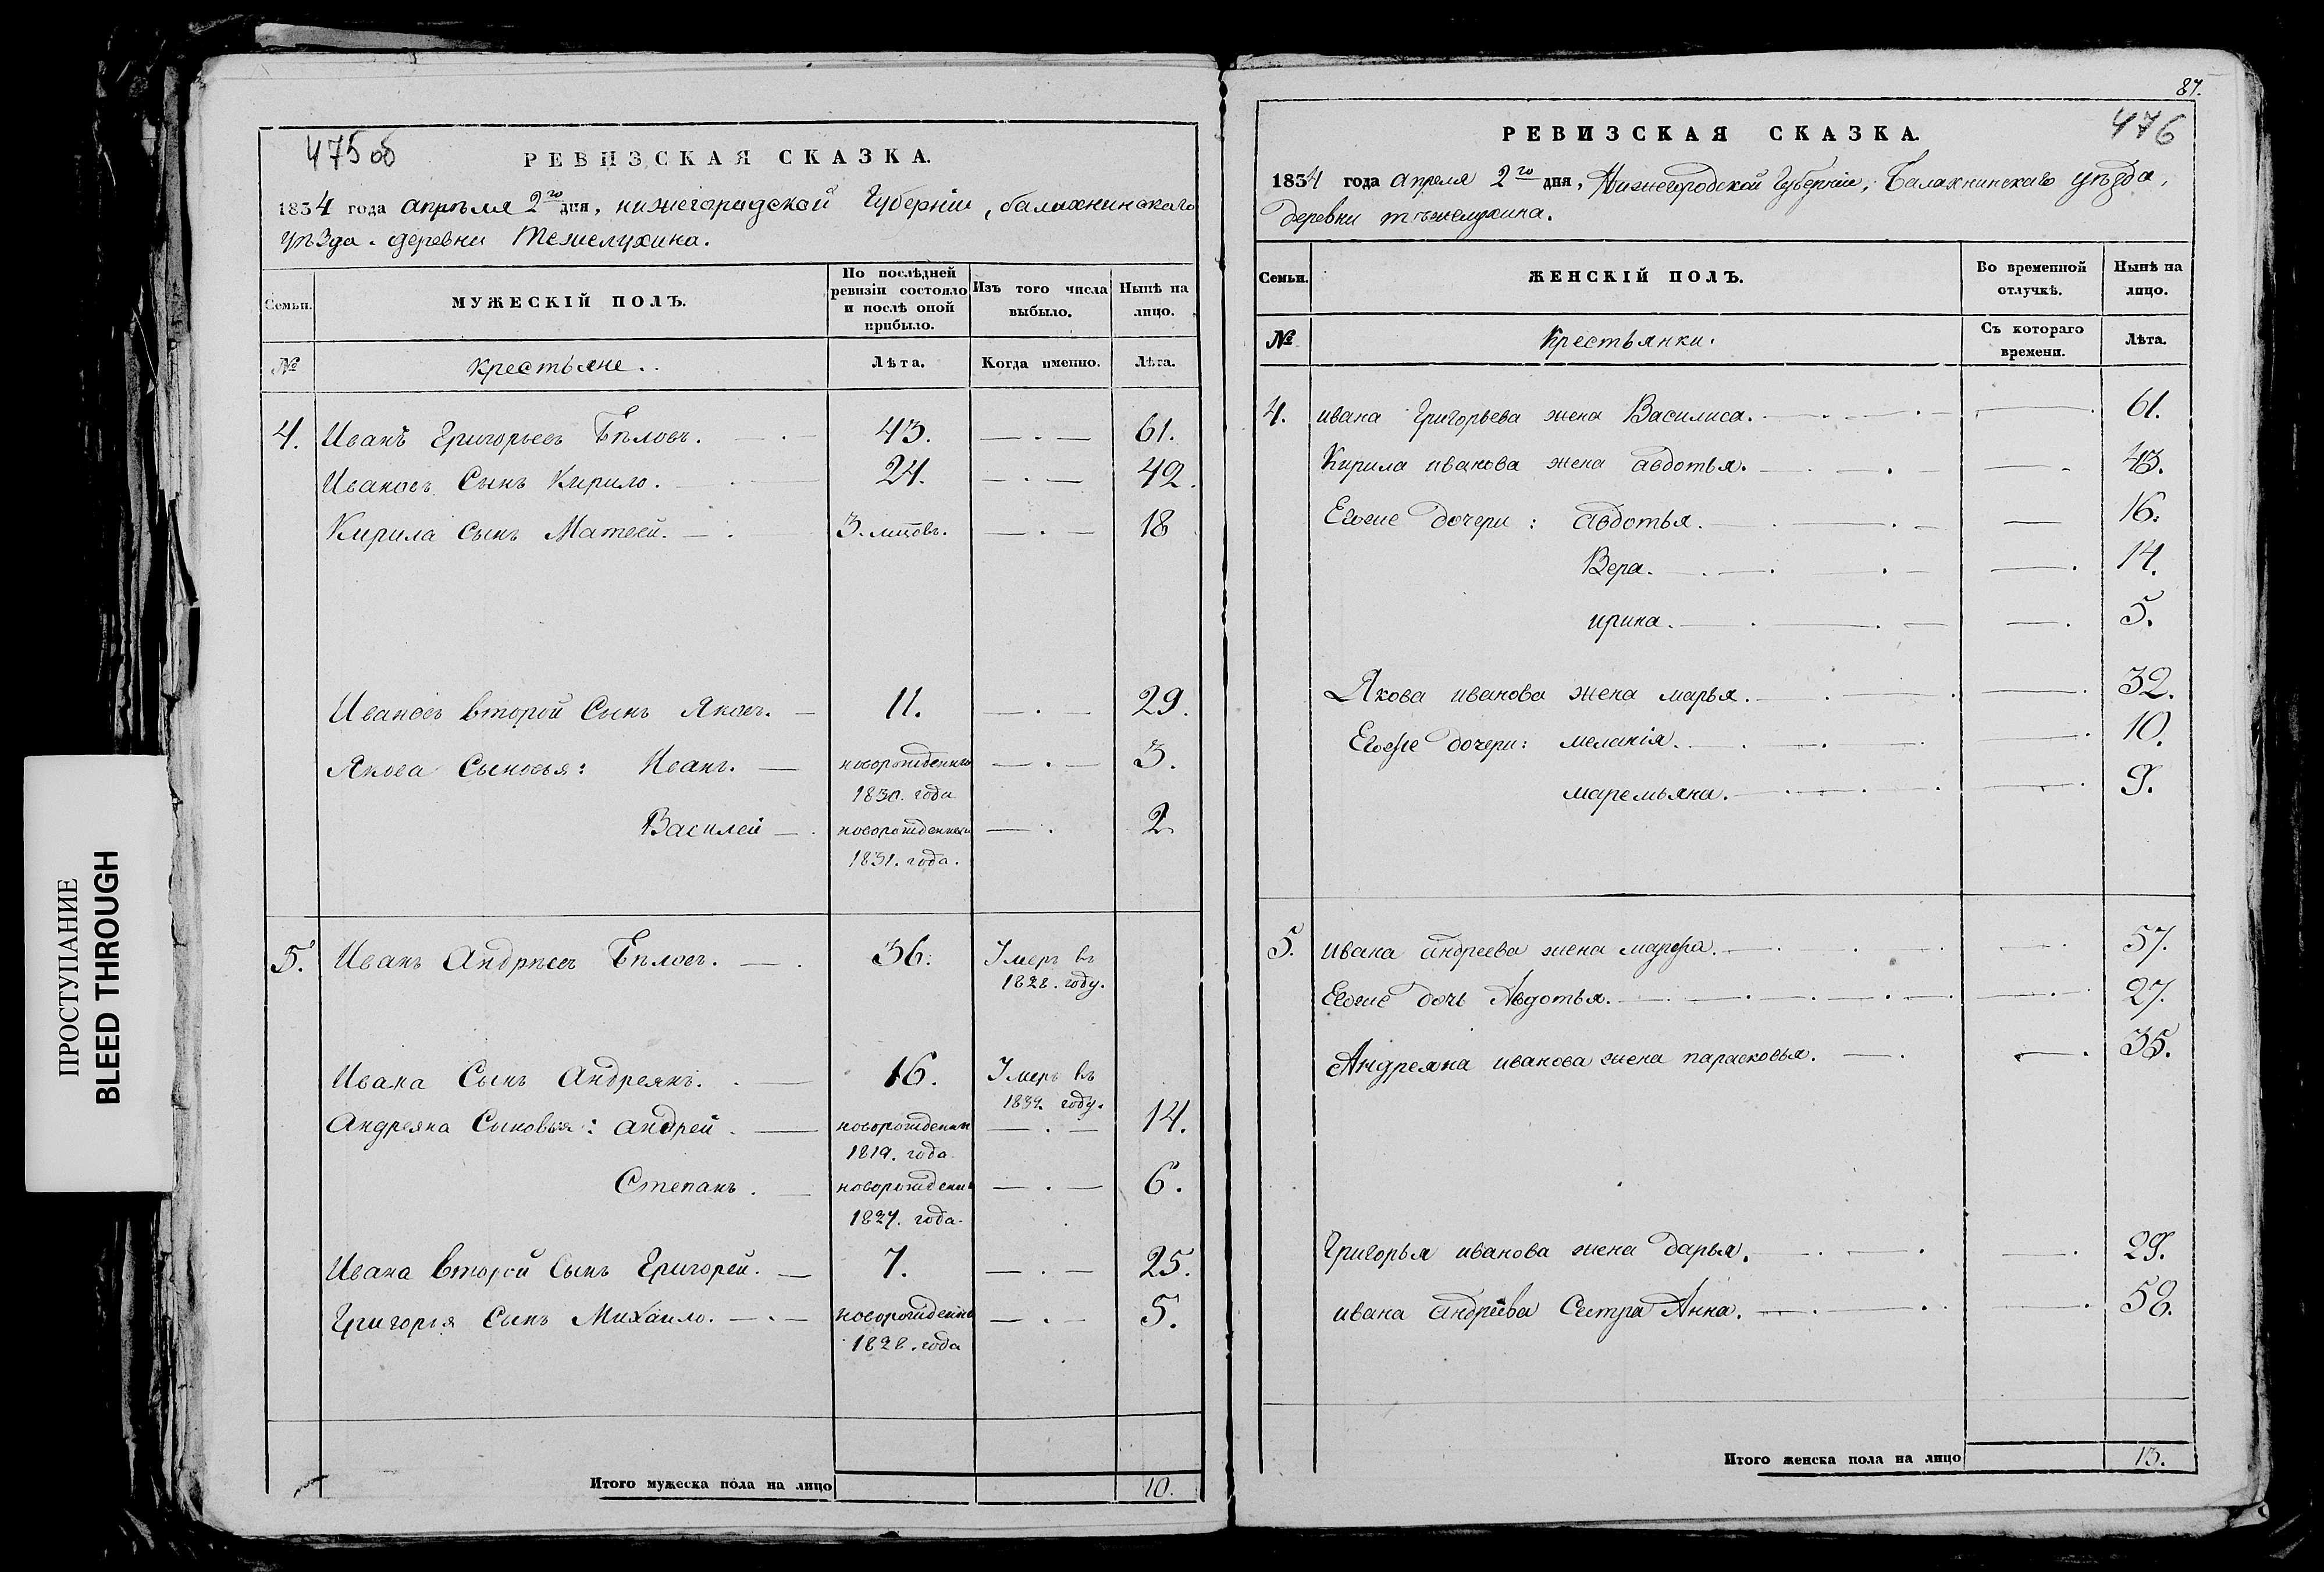 ПРОСТУПАНИЕ
BLEED THROUGH
475 об
РЕВИЗСКАЯ СКАЗКА.
1834 года апрѣля 2го дня, нижегородской Губерніи, балахнинскаго
уѣзда. деревни тежелухина.
Семьи.
МУЖЕСКІЙ ПОЛЪ.
По послѣдней
ревизіи состояло
и послѣ оной
прибыло.
Изъ того числа
выбыло.
Нынѣ на
лицо.
№
крестьяне.
Лѣта.
Когда именно.
Лѣта.
4. Иванъ Григорьевъ Бѣловъ. 43. 61.
Ивановъ Сынъ Кирило. 24. 42.
Кирила Сынъ Матвей. 3. мцовъ. 18
Ивановъ второй Сынъ Яковъ. 11. 29.
Якова Сыновья: Иванъ. новорожденный 3.
1830. года
Василей новорожденный 2.
1831. года.
5. Иванъ Андрѣевъ Бѣловъ. 36. Умеръ въ
1828. году.
Ивана Сынъ Андреянъ. 16. Умеръ въ
году.
Андреяна Сыновья: андрей новорожденный 14.
1819. года.
Степанъ. новорожденный 6.
1827. года.
Ивана второй Сынъ Григорей. 7. 25.
Григорья Сынъ Михайло. новорожденный 5.
1828. года
Итого мужеска пола на лицо 10.
87.
476
РЕВИЗСКАЯ СКАЗКА.
1834 года апреля 2го дня, Нижегородской Губерніи, Балахнинскаго уѣзда,
деревни тѣжелухина.
Семьи.
ЖЕНСКІЙ ПОЛЪ.
Во временной
отлучкѣ.
Нынѣ на
лицо.
№
Крестьянки.
Съ котораго
времени.
Лѣта.
4. ивана Григорьева жена Василиса. 61.
Кирила иванова жена авдотья. 43.
Евоже дочери: авдотья. 16.
Вера. 14.
ирина. 5.
Якова иванова жена марья. 32.
Евоже дочери: меланія. 10.
маремьяна. 9.
5. ивана андреева жена марфа. 57.
Евоже дочь Авдотья. 27.
Андреяна иванова жена парасковья. 35.
Григорья иванова жена дарья. 29.
ивана андреева Сестра Анна. 58.
Итого женска пола на лицо 13.